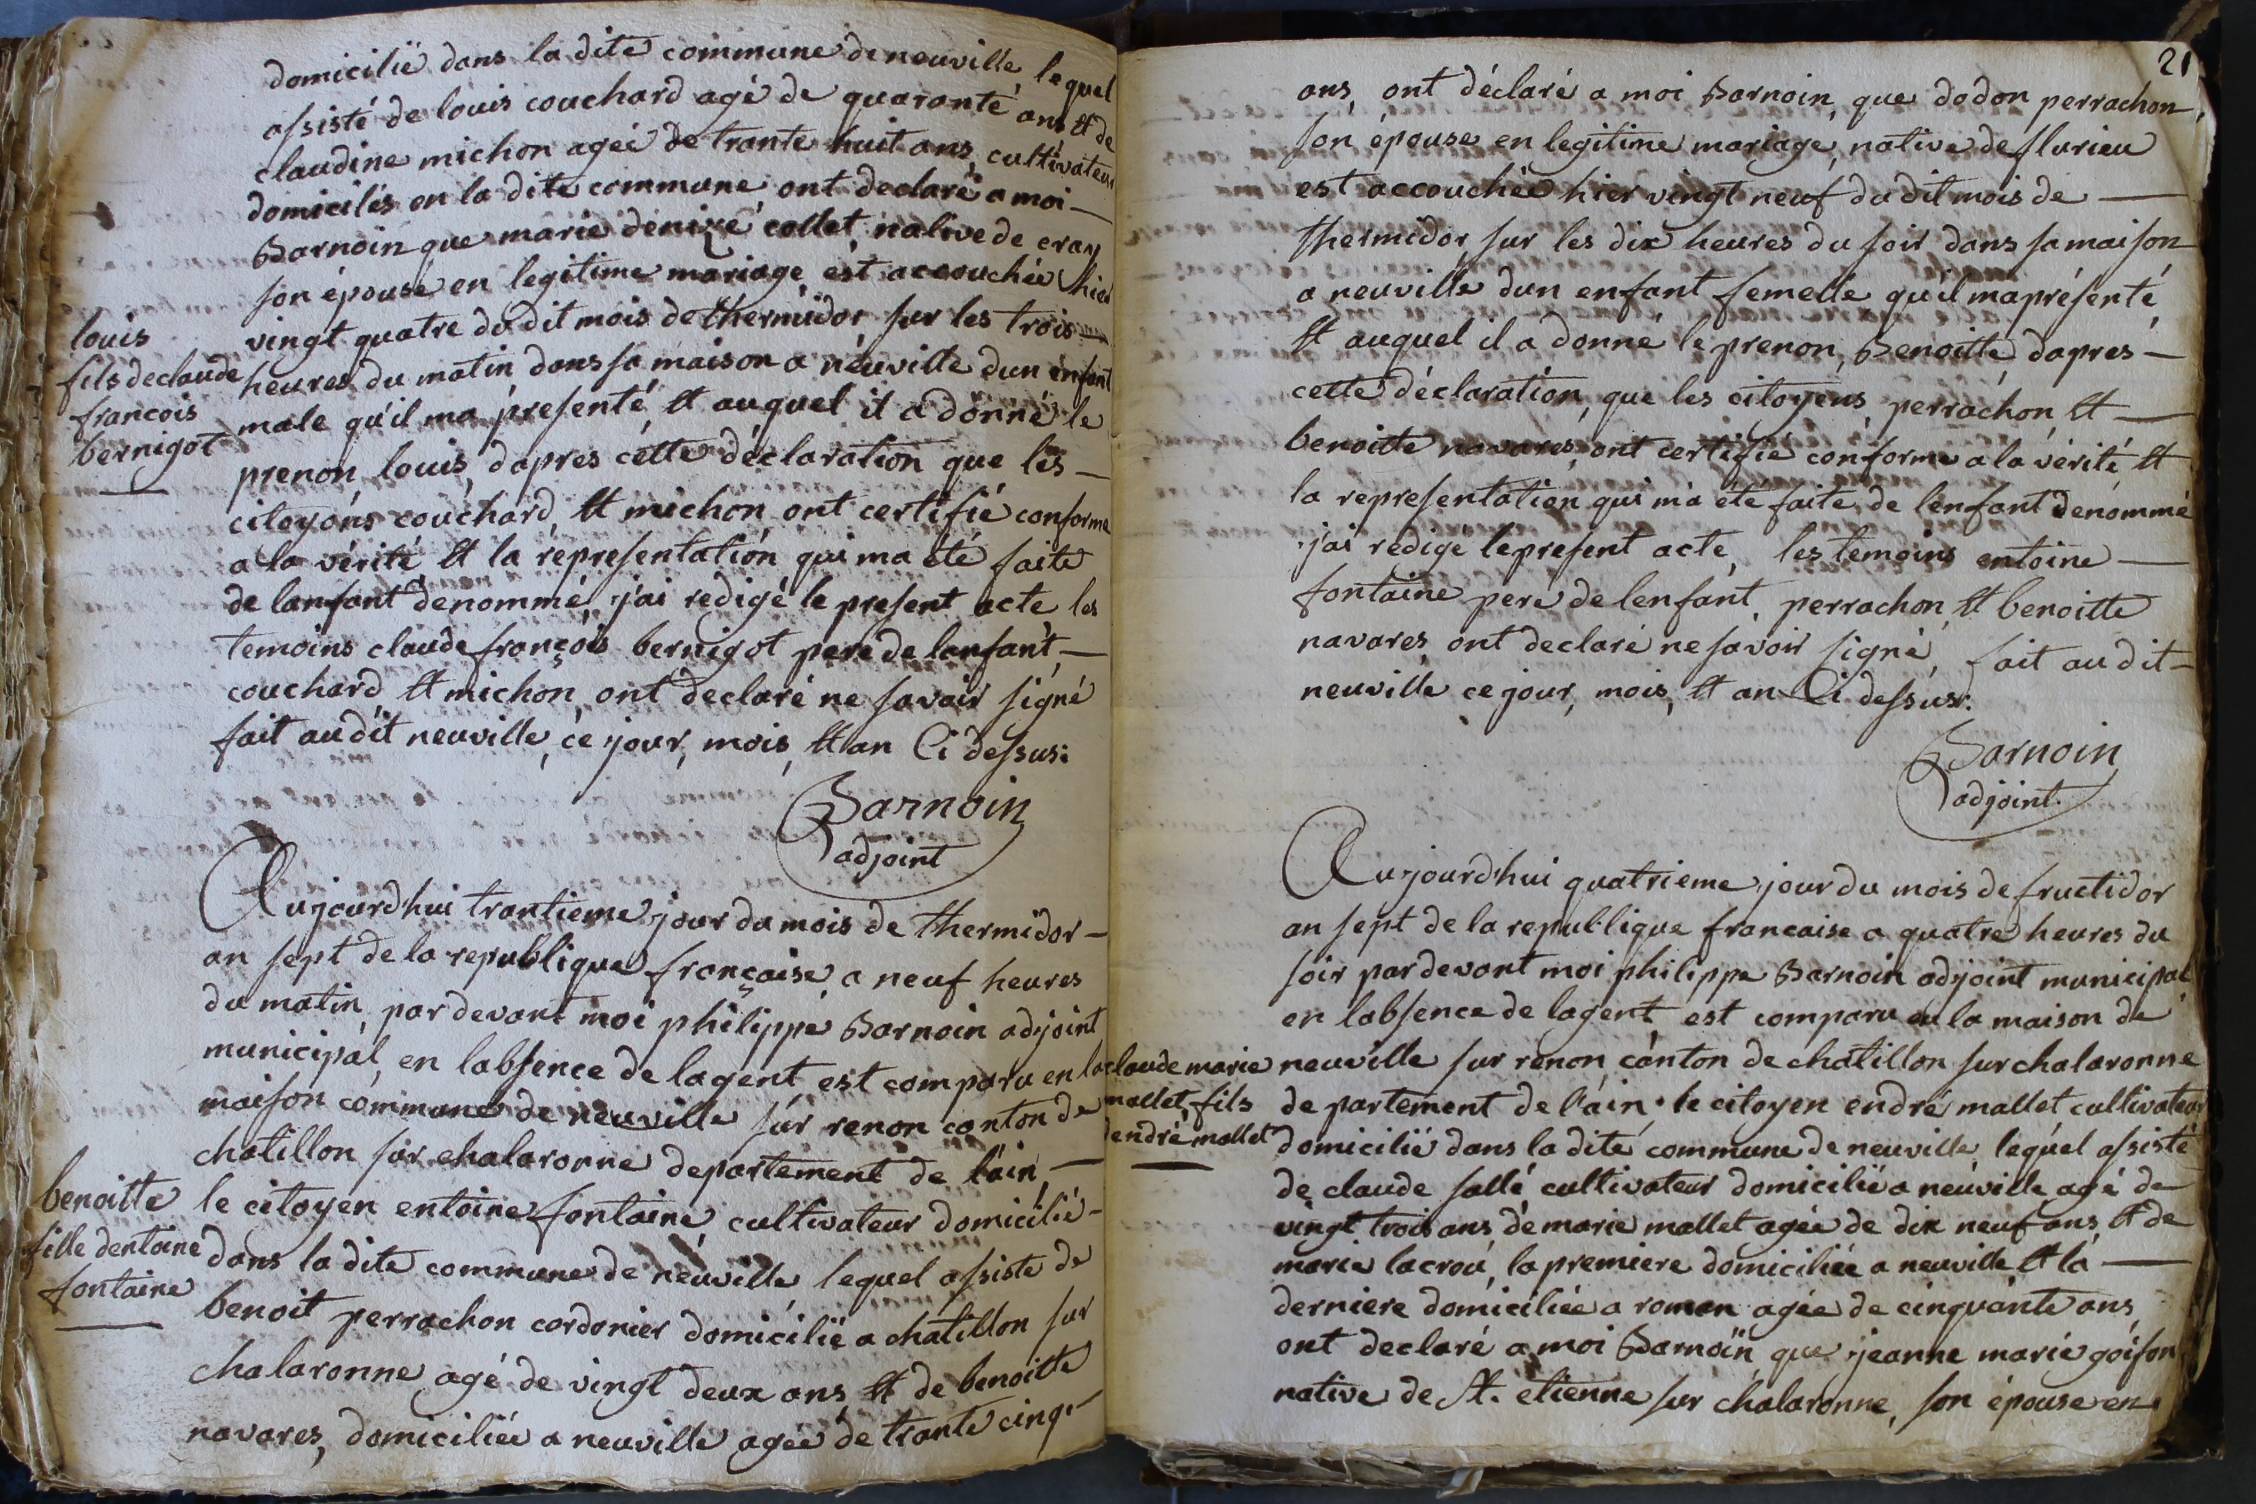 domicilié dans la dite commune de neuville, lequel
assisté de louis couchard agé de quarante ans et de
claudine michon ageé de trante huit ans, cultivateurs
domicilés en la dite commune, ont declaré a moi —
Barnoin que marie denize collet, native de cray
son épouse en legitime mariage, est accouchée hier
vingt quatre du dit mois de thermidor sur les trois —
heures du matin dans sa maison a neuville dun enfant
male qu'il ma présenté, et auquel il a donné le
prenon, louis, dapres cette déclaration que les —
citoyens couchard, et michon, ont certifié conforme
a la vérité et la représentation qui ma été faite
de lanfant dénommé, j'ai redigé le présent acte, les
temoins claude françois bernigot pere de lanfant, —
couchard, et michon, ont declaré ne savoir signé
fait au dit neuville, ce jour, mois, et an Ci dessus:
Barnoin
adjoint
louis
fils de claude
francois
bernigot
Aujourdhui trantieme jour du mois de thermidor —
an sept de la republique française, a neuf heures
du matin, par devant moi philippe Barnoin adjoint
municipal, en labsence de lagent, est comparu en la
maison commune de neuville sur renon canton de
chatillon sur chalaronne departement de lain, —
le citoyen entoine fontaine, cultivateur domicilié —
dans la dite commune de neuville, lequel assiste de
benoit perrachon cordonier domicilié a chatillon sur
chalaronne agé de vingt deux ans, et de benoitte
navares, domiciliée a neuville agée de trante cinq —
benoitte
fille dentoine
fontaine
21
ans, ont déclaré a moi Barnoin, que dodon perrachon,
son épouse en legitime mariage, native de flurieu
est accouchée hier vingt neuf du dit mois de —
thermidor, sur les dix heures du soir dans sa maison
a neuville dun enfant femelle qu'il ma présenté,
et auquel il a donné le prenon, Benoitte, dapres —
cette déclaration, que les citoyens, perrachon, et —
benoitte navares, ont certifié conforme a la vérité, et
la representation qui m'a été faite, de lenfant denommé
j'ai rédigé le present acte, les temoins entoine —
fontaine pere de lenfant, perrachon, et benoitte
navares, ont declaré ne savoir signé, fait au dit —
neuville ce jour, mois, et an Ci dessus:
Barnoin
adjoint.
Aujourd'hui quatrieme jour du mois de fructidor
an sept de la republique francaise a quatre heures du
soir par devant moi philippe Barnoin adjoint municipal,
en labsence de lagent, est comparu en la maison de
neuville sur renon canton de chatillon sur chalaronne
de partement de l'ain. le citoyen endré mallet cultivateur
domicilié dans la dite commune de neuville, lequel assisté
de claude sallé, cultivateur domicilié a neuville agé de
vingt trois ans, de marie mallet agée de dix neuf ans, et de
marie lacroü, la premiere domiciliée a neuville, et la —
derniere domiciliée a roman agée de cinquante ans,
ont declaré a moi Barnoin, que jeanne marie goifon,
native de St. etienne sur chalaronne, son épouse en
claude marie
mallet, fils
dendré mallet